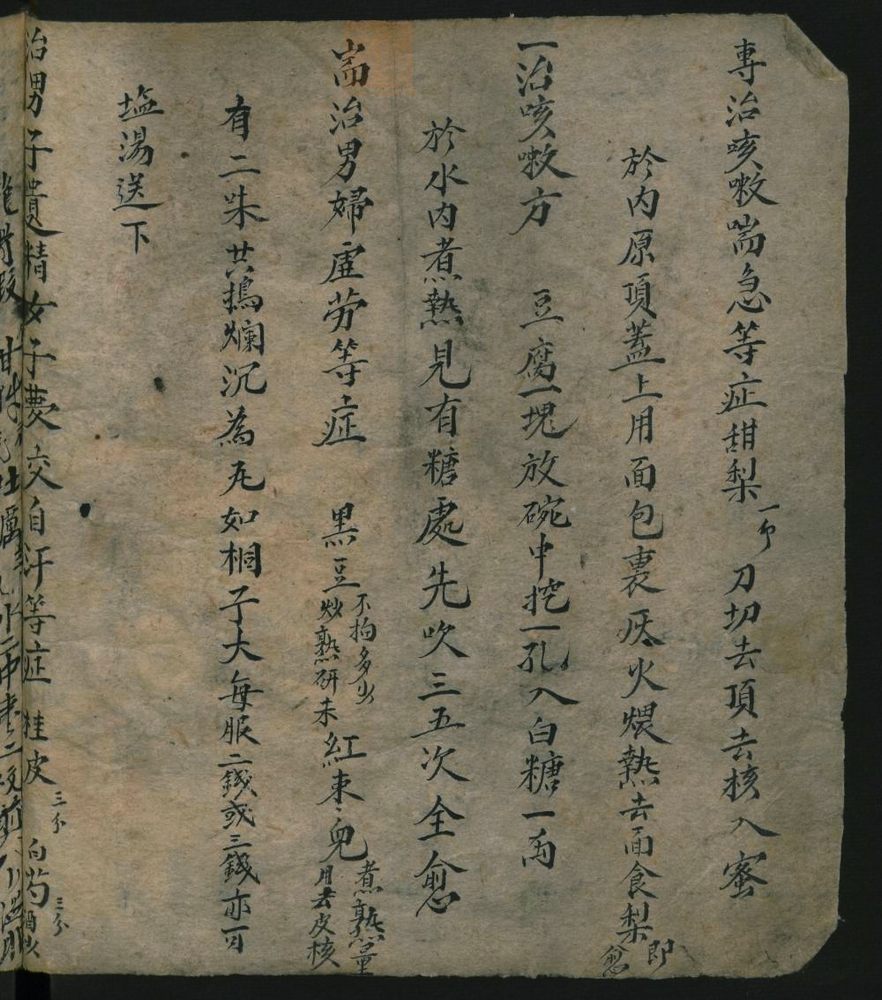 專治咳嗽喘急等症甜梨一个刀切去頂去核入蜜
於内原頂蓋上用面包裹灰火煨熱去面食梨即愈
一治咳嗽方 豆腐一塊放碗中挖一孔入白糖一两
於水内煮熱見有糖處先吹三五次全愈
耑治男婦虛劳等症 黑豆不拘多少炒熟研末紅枣兒煮熟量用去皮核
有二味共搗爛沉為丸如桐子大每服二錢或三錢亦可
塩湯送下
治男子遺精女子夢交自汗等症 桂皮三分 白芍三分